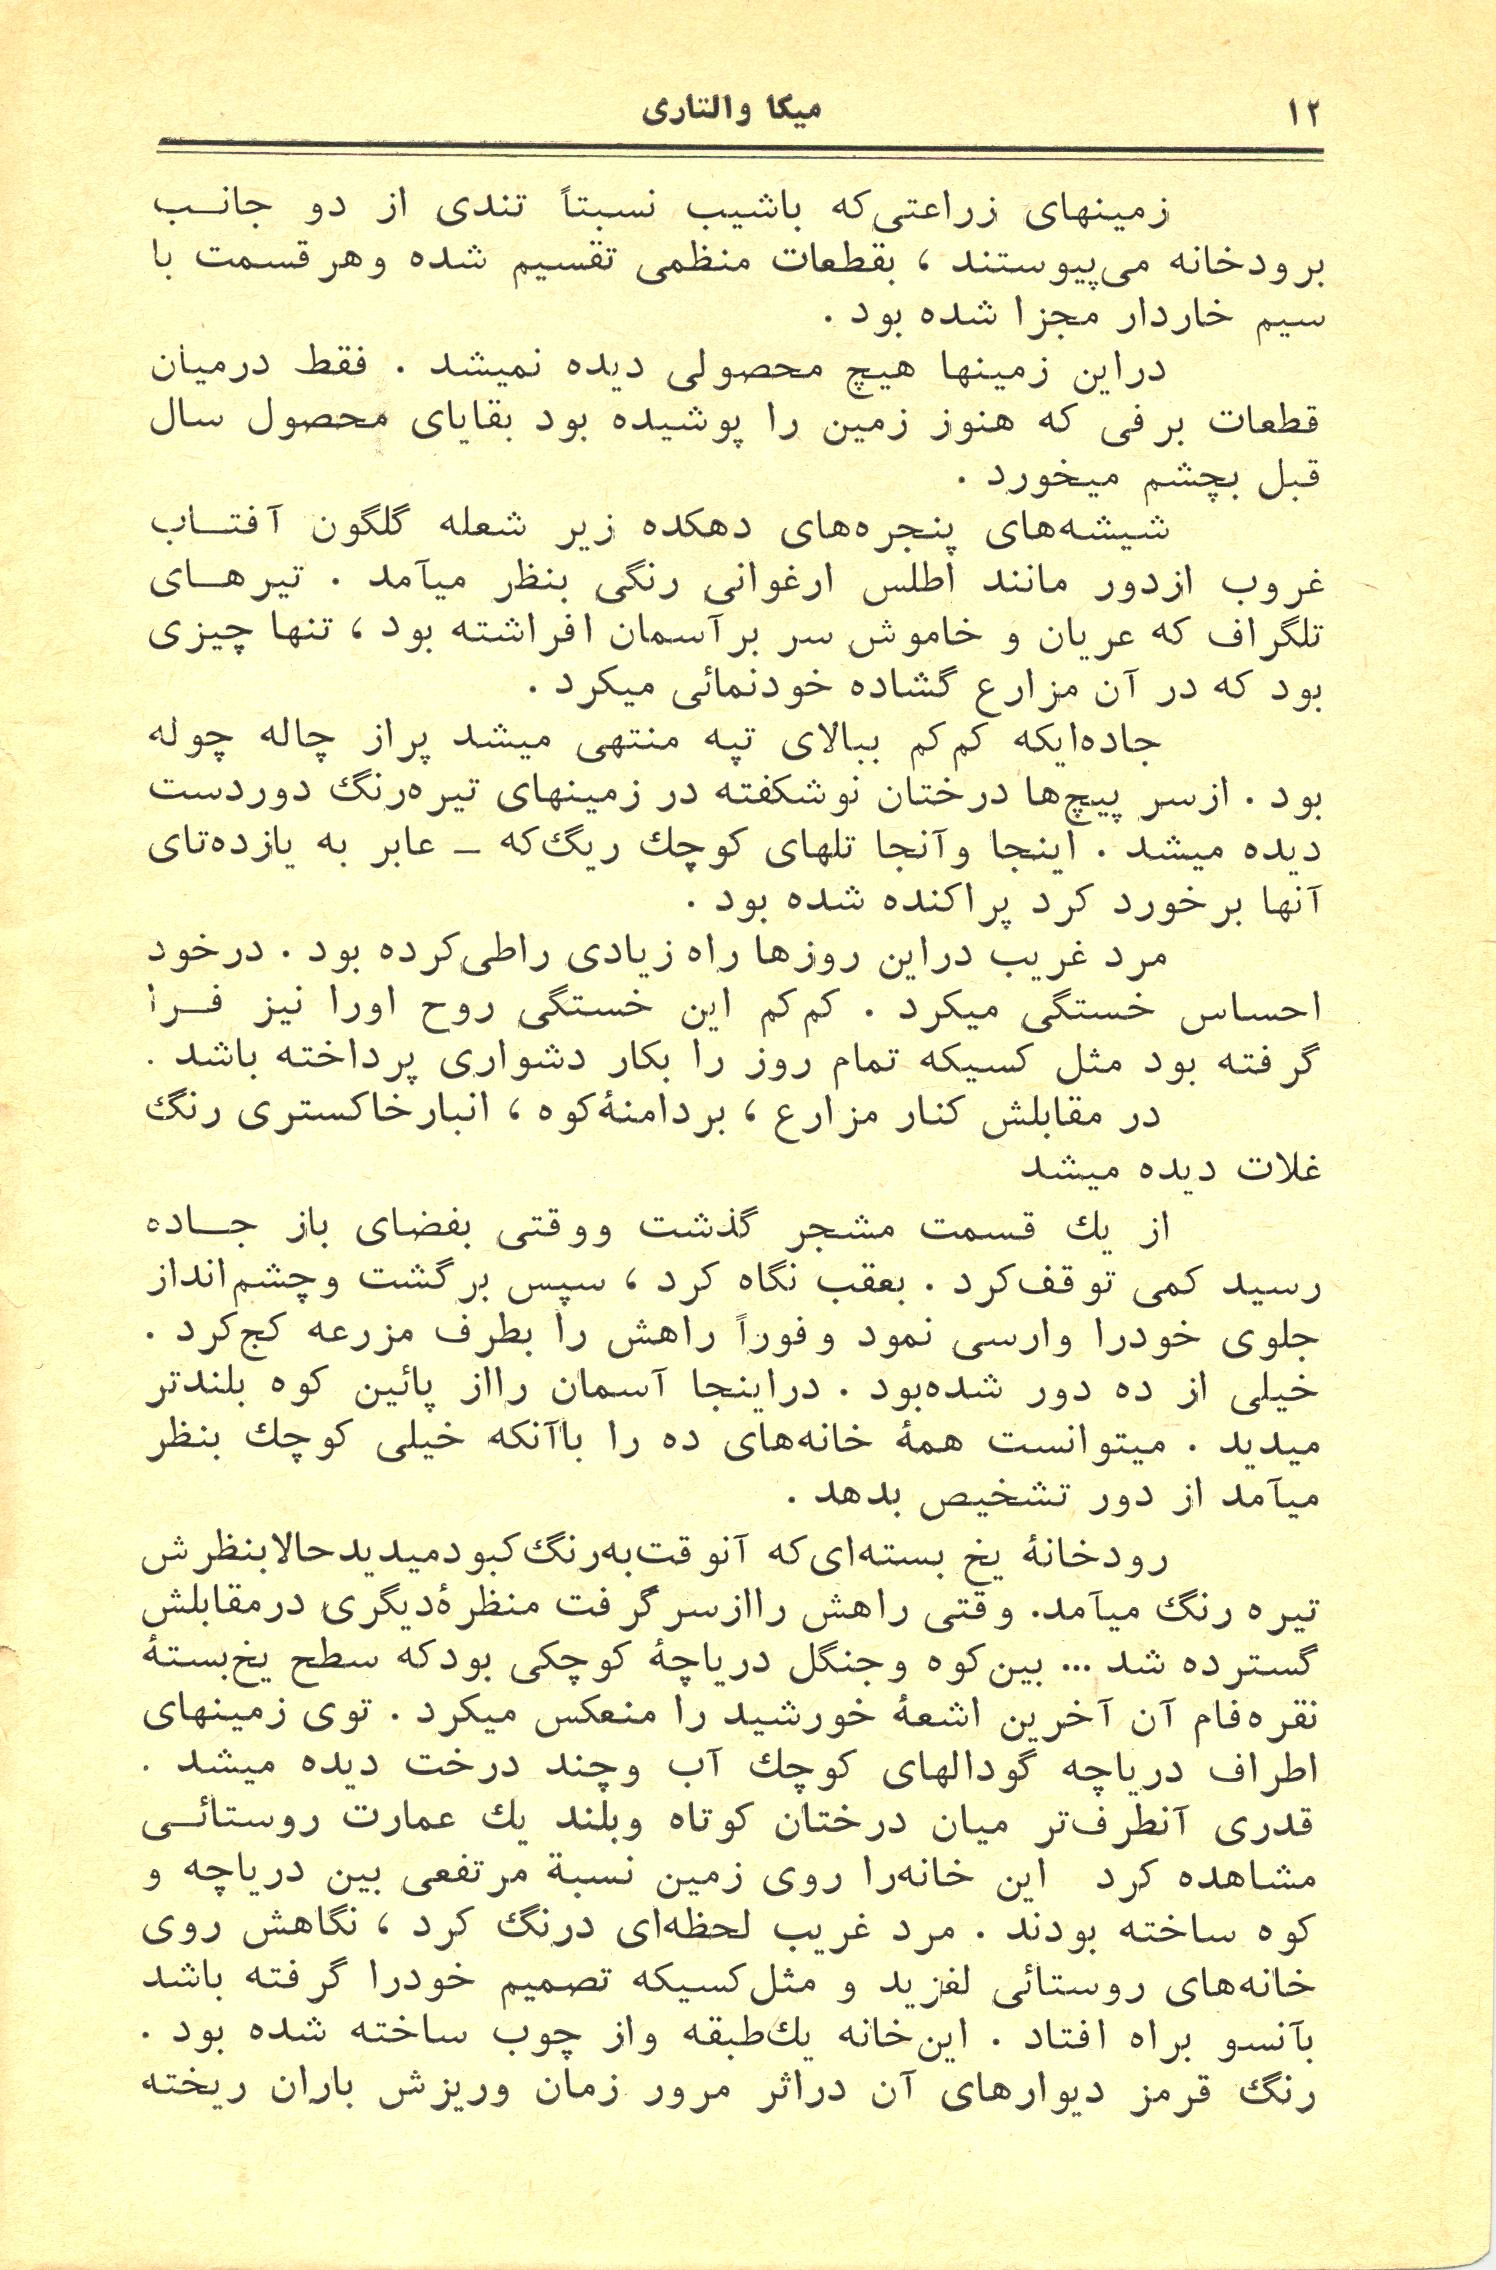 ۱۲
میکا والتاری
زمینهای زراعتی‌که باشیب نسبتاً تندی از دو جانب
برودخانه می‌پیوستند ، بقطعات منظمی تقسیم شده وهرقسمت با
سیم خاردار مجزا شده بود .
دراین زمینها هیچ محصولی دیده نمیشد . فقط درمیان
قطعات برفی که هنوز زمین را پوشیده بود بقایای محصول سال
قبل بچشم میخورد .
شیشه‌های پنجره‌های دهکده زیر شعله گلگون آفتاب
غروب ازدور مانند اطلس ارغوانی رنگی بنظر میآمد . تیرهای
تلگراف که عریان و خاموش سر برآسمان افراشته بود ، تنها چیزی
بود که در آن مزارع گشاده خودنمائی میکرد .
جاده‌ایکه کم‌کم ببالای تپه منتهی میشد پراز چاله چوله
بود . ازسر پیچ‌ها درختان نوشکفته در زمینهای تیره‌رنگ دوردست
دیده میشد . اینجا وآنجا تلهای کوچك ریگ‌که ـ عابر به یازده‌تای
آنها برخورد کرد پراکنده شده بود .
مرد غریب دراین روزها راه زیادی راطی‌کرده بود . درخود
احساس خستگی میکرد . کم‌کم این خستگی روح اورا نیز فرا
گرفته بود مثل کسیکه تمام روز را بکار دشواری پرداخته باشد .
در مقابلش کنار مزارع ، بردامنهٔ‌کوه ، انبارخاکستری رنگ
غلات دیده میشد
از یك قسمت مشجر گذشت ووقتی بفضای باز جاده
رسید کمی توقف‌کرد . بعقب نگاه کرد ، سپس برگشت وچشم‌انداز
جلوی خودرا وارسی نمود وفوراً راهش را بطرف مزرعه کج‌کرد .
خیلی از ده دور شده‌بود . دراینجا آسمان رااز پائین کوه بلندتر
میدید . میتوانست همهٔ خانه‌های ده را باآنکه خیلی کوچك بنظر
میآمد از دور تشخیص بدهد .
رودخانهٔ یخ بسته‌ای‌که آنوقت‌به‌رنگ‌کبودمیدیدحالابنظرش
تیره رنگ میآمد. وقتی راهش راازسرگرفت منظرهٔ‌دیگری درمقابلش
گسترده شد ... بین‌کوه وجنگل دریاچهٔ کوچکی بودکه سطح یخ‌بستهٔ
نقره‌فام آن آخرین اشعهٔ خورشید را منعکس میکرد . توی زمینهای
اطراف دریاچه گودالهای کوچك آب وچند درخت دیده میشد .
قدری آنطرف‌تر میان درختان کوتاه وبلند یك عمارت روستائی
مشاهده کرد این خانه‌را روی زمین نسبة مرتفعی بین دریاچه و
کوه ساخته بودند . مرد غریب لحظه‌ای درنگ کرد ، نگاهش روی
خانه‌های روستائی لغزید و مثل‌کسیکه تصمیم خودرا گرفته باشد
بآنسو براه افتاد . این‌خانه یك‌طبقه واز چوب ساخته شده بود .
رنگ قرمز دیوارهای آن دراثر مرور زمان وریزش باران ریخته